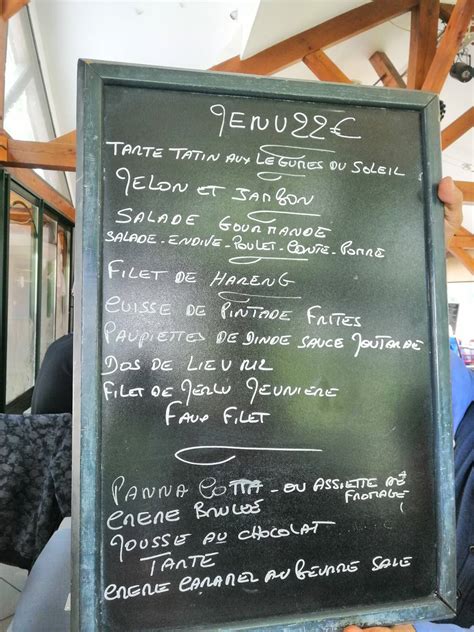 MENU 22€
TARTE TATIN AUX LEGUMES DU SOLEIL
MELON ET JAMBON
SALADE GOURMANDE
SALADE - ENDIVE - POULET - CONTE - POMME
FILET DE HARENG
CUISSE DE PINTADE FRITES
PAUPIETTES DE DINDE SAUCE MOUTARDE
DOS DE LIEU RIZ
FILET DE MERLU MEUNIERE
FAUX FILET
PANNA COTTA - OU ASSIETTE DE
FROMAGE
CREME BRULEE
MOUSSE AU CHOCOLAT
TARTE
CREME CARAMEL AU BEURRE SALE